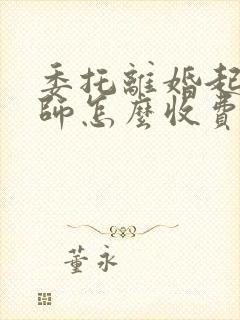 委托離婚起
師怎麼收費
董永